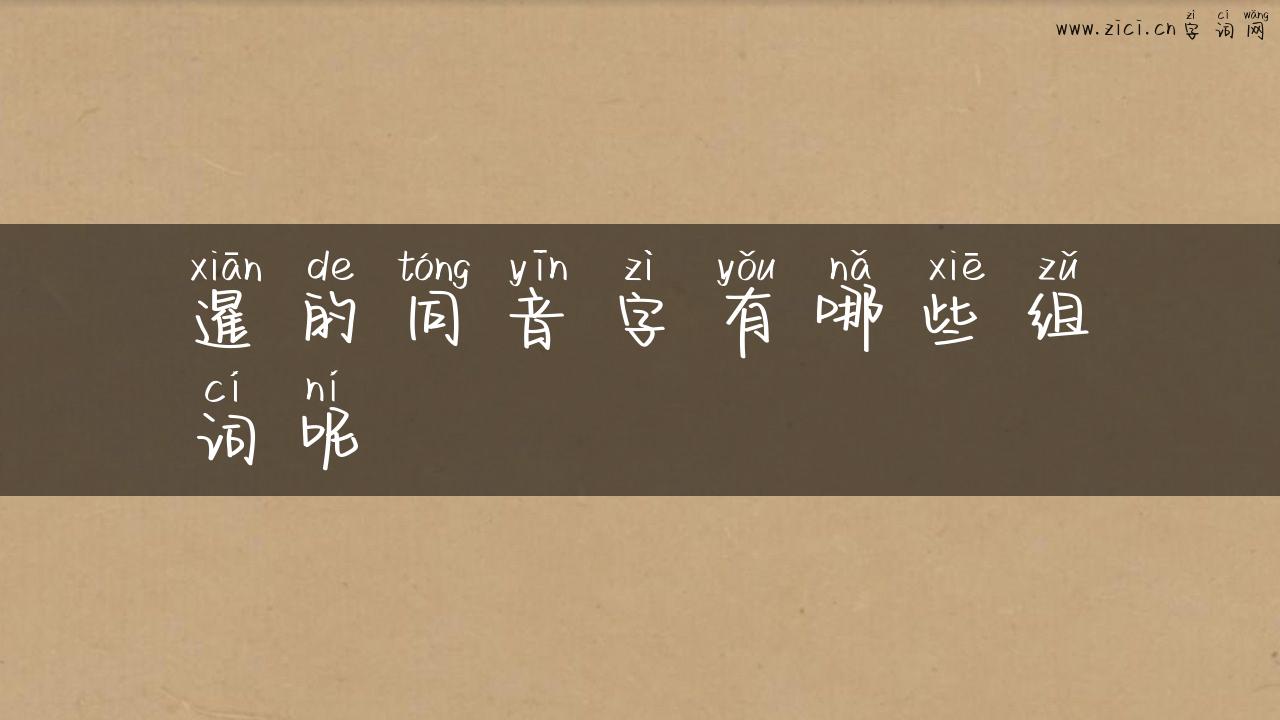 zì cí wǎng
www.zici.cn 字 词 网
xiān de tóng yīn zì yǒu nǎ xiē zǔ
暹 的 同 音 字 有 哪 些 组
cí ní
词 呢